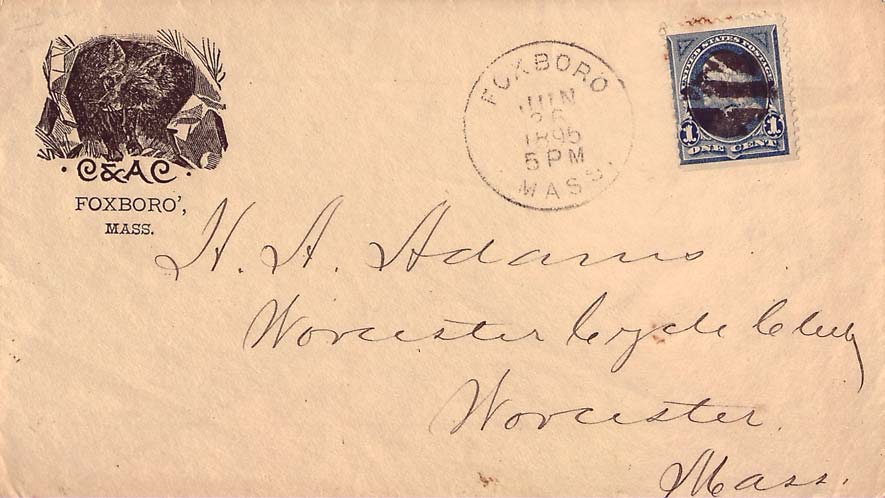 C&AC
FOXBORO',
MASS.
FOXBORO
JUN
26
1895
5 PM
MASS.
UNITED STATES POSTAGE
1 1
ONE CENT
H. A. Adams
Worcester Cycle Club
Worcester.
Mass.